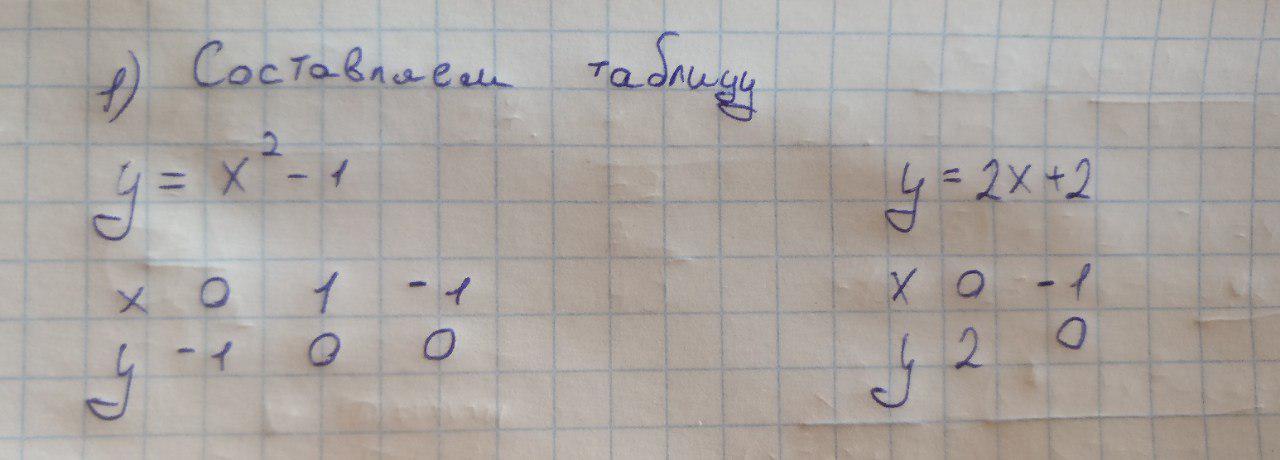 1) Составляем таблицу
y = x² - 1 y = 2x + 2
x 0 1 -1 x 0 -1
y -1 0 0 y 2 0